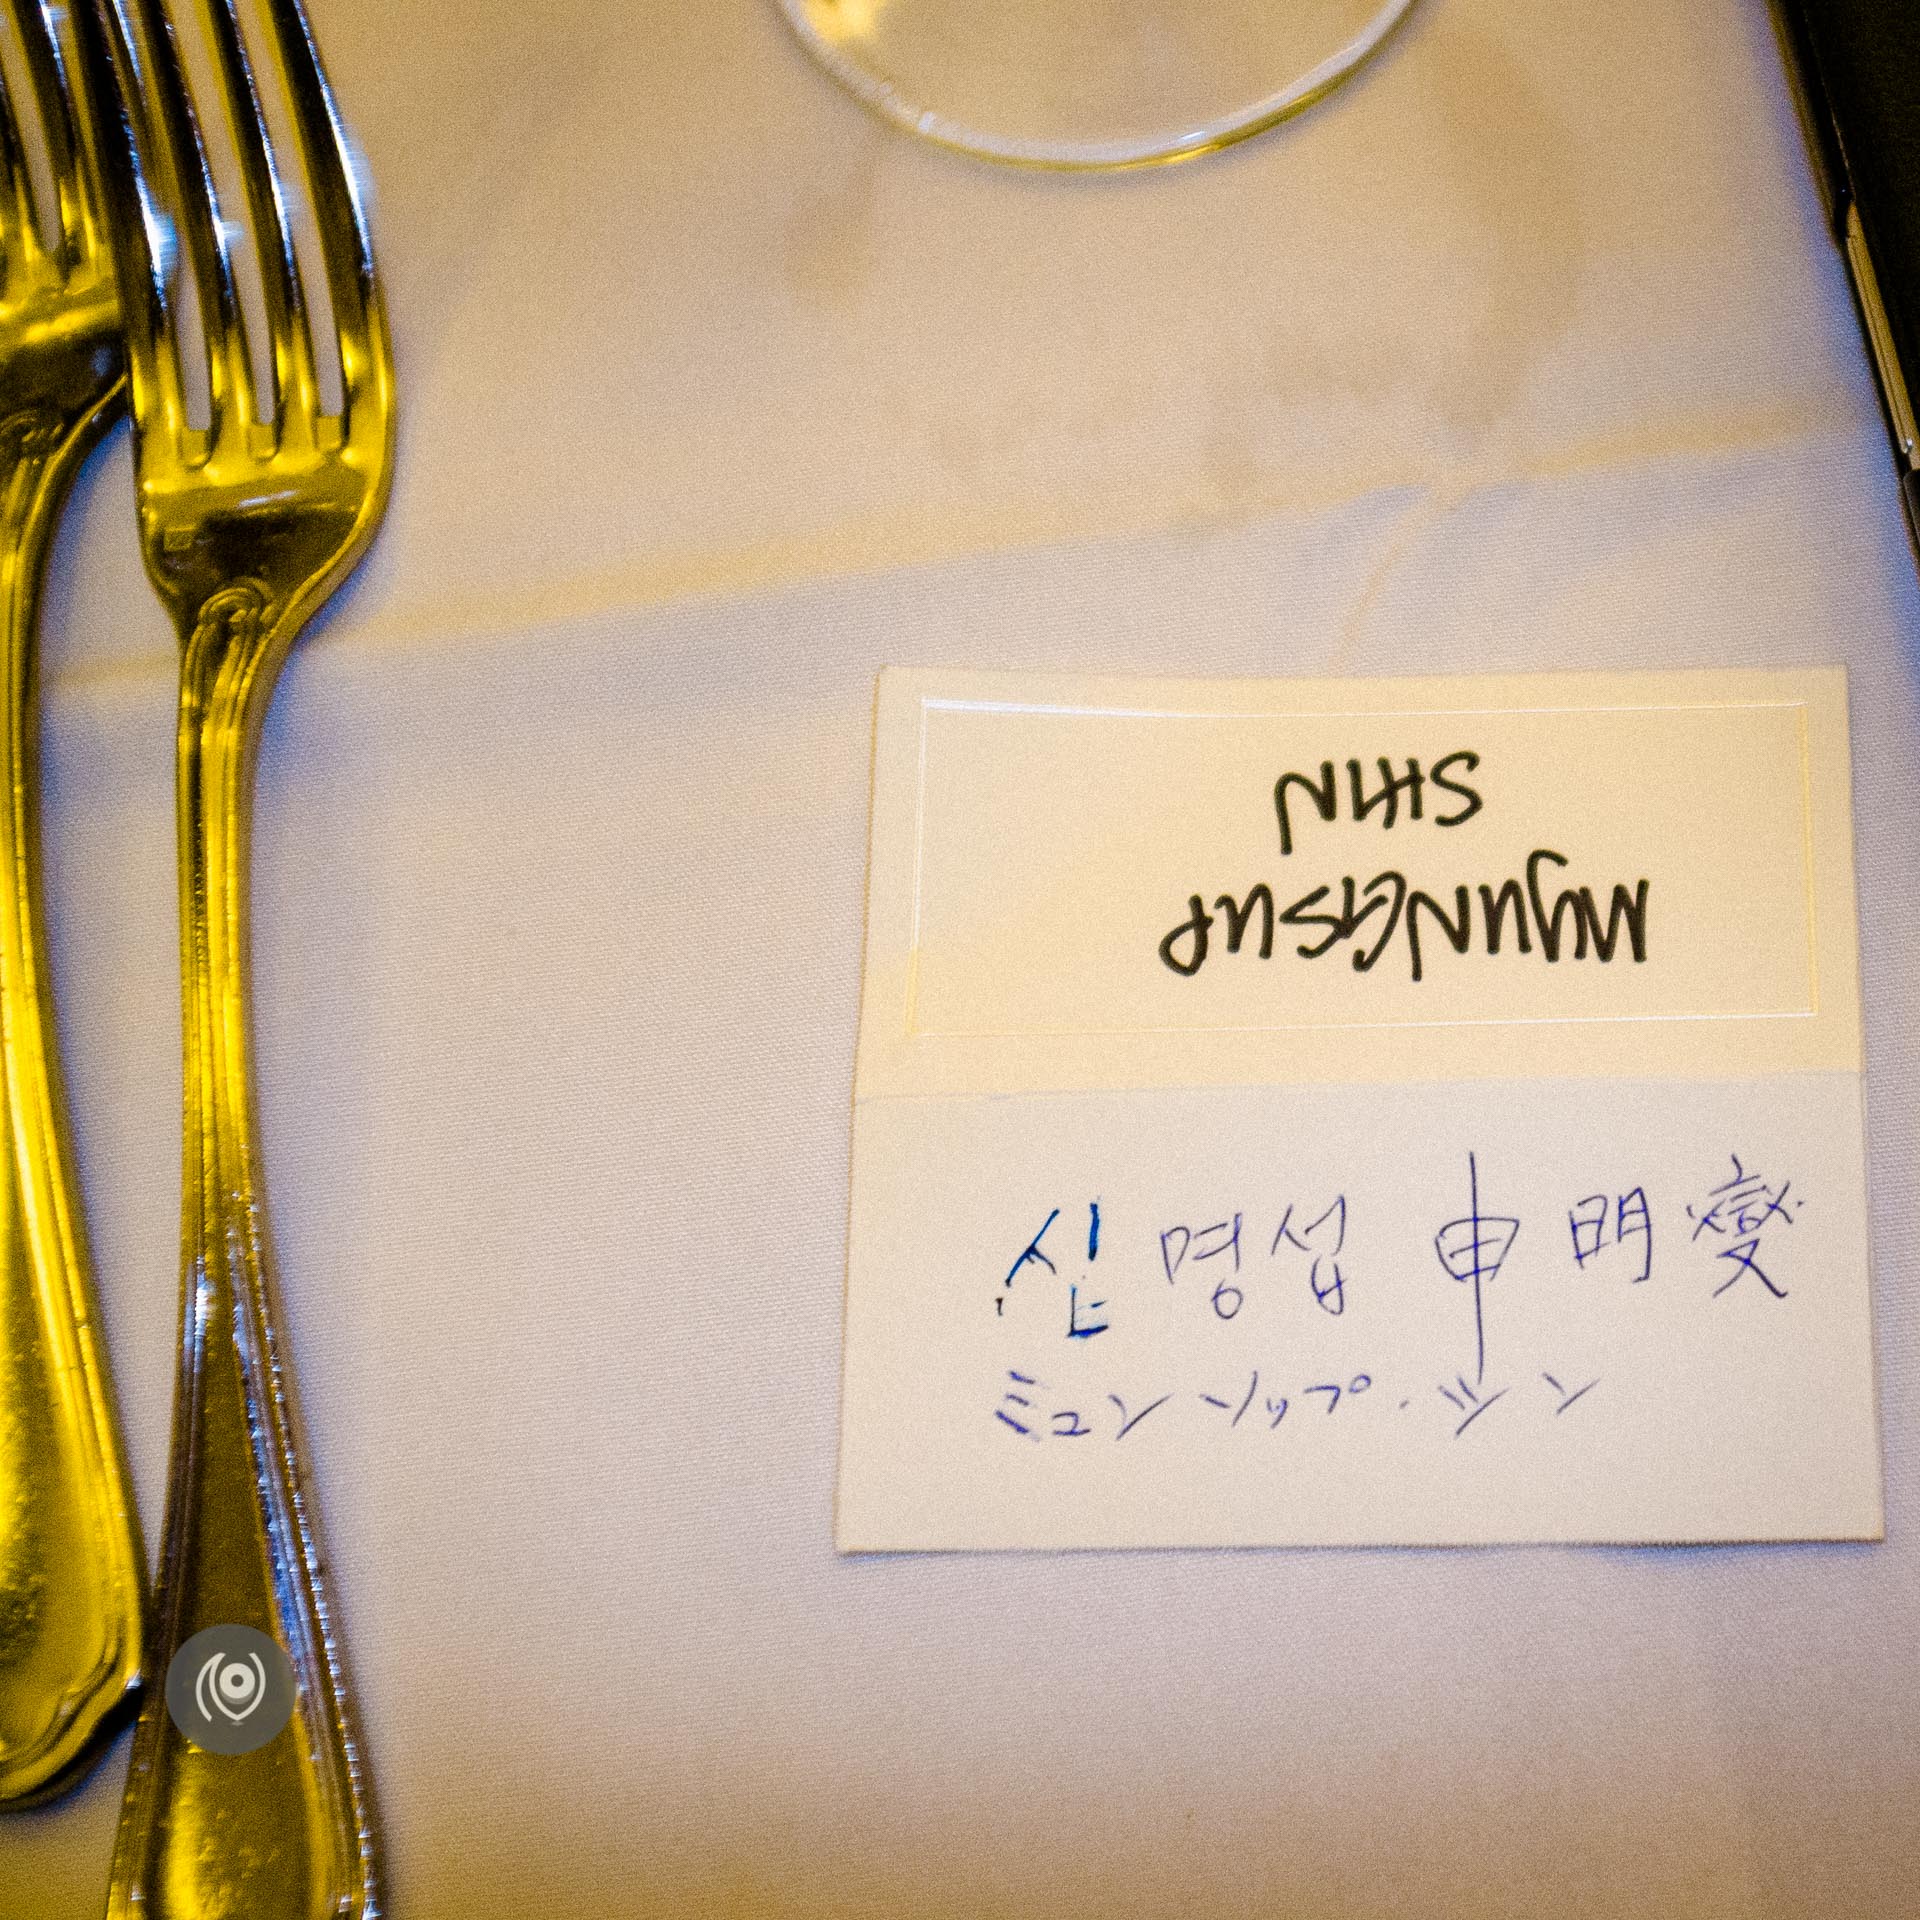 MYUNGSUP
SHIN
신 명섭 申 明燮
ミュン ソップ・シン